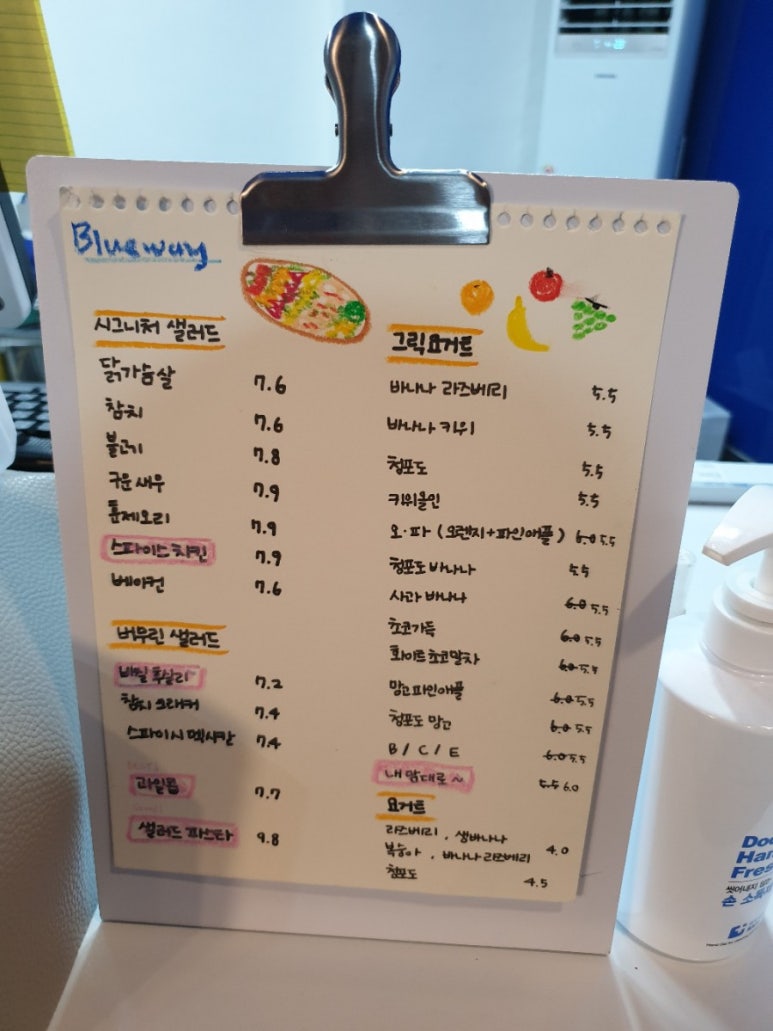 Blueway
시그니처 샐러드
닭가슴살 7.6
참치 7.6
불고기 7.8
구운새우 7.9
훈제오리 7.9
스파이스 치킨 7.9
베이컨 7.6
버무린 샐러드
바질 푸실리 7.2
참치 크래커 7.4
스파이시 멕시칸 7.4
과일볼 7.7
샐러드 파스타 9.8
그릭요거트
바나나 라즈베리 5.5
바나나 키위 5.5
청포도 5.5
키위올인 5.5
오·파 (오렌지+파인애플) 6.0 5.5
청포도 바나나 5.5
사과 바나나 6.0 5.5
초코가득 6.0 5.5
화이트초코말차 6.0 5.5
망고파인애플 6.0 5.5
청포도 망고 6.0 5.5
B / C / E 6.0 5.5
내 맘대로~ 5.5 6.0
요거트
라즈베리, 생바나나
복숭아, 바나나 라즈베리 4.0
청포도 4.5
손 소독